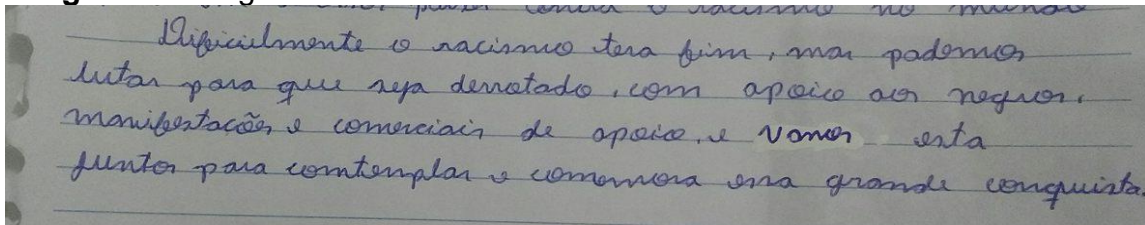 Dificilmente o racismo tera fim, mas podemos
lutar para que seja derrotado, com apoio aos negros,
manifestações e comerciais de apoio, e vamos esta
juntos para comtemplar e comemora essa grande conquista.